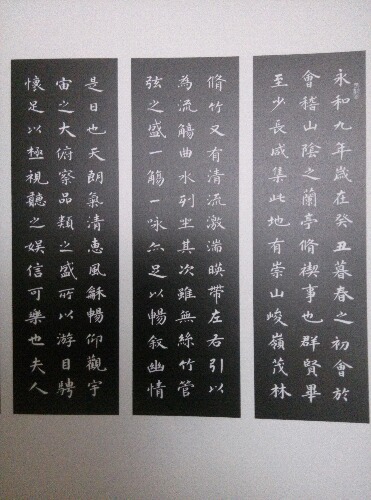 永和九年歲在癸丑暮春之初會於
會稽山陰之蘭亭脩禊事也群賢畢
至少長咸集此地有崇山峻嶺茂林
脩竹又有清流激湍暎帶左右引以
為流觴曲水列坐其次雖無絲竹管
弦之盛一觴一咏亦足以暢叙幽情
是日也天朗氣清惠風龢暢仰觀宇
宙之大俯察品類之盛所以游目騁
懷足以極視聽之娛信可樂也夫人